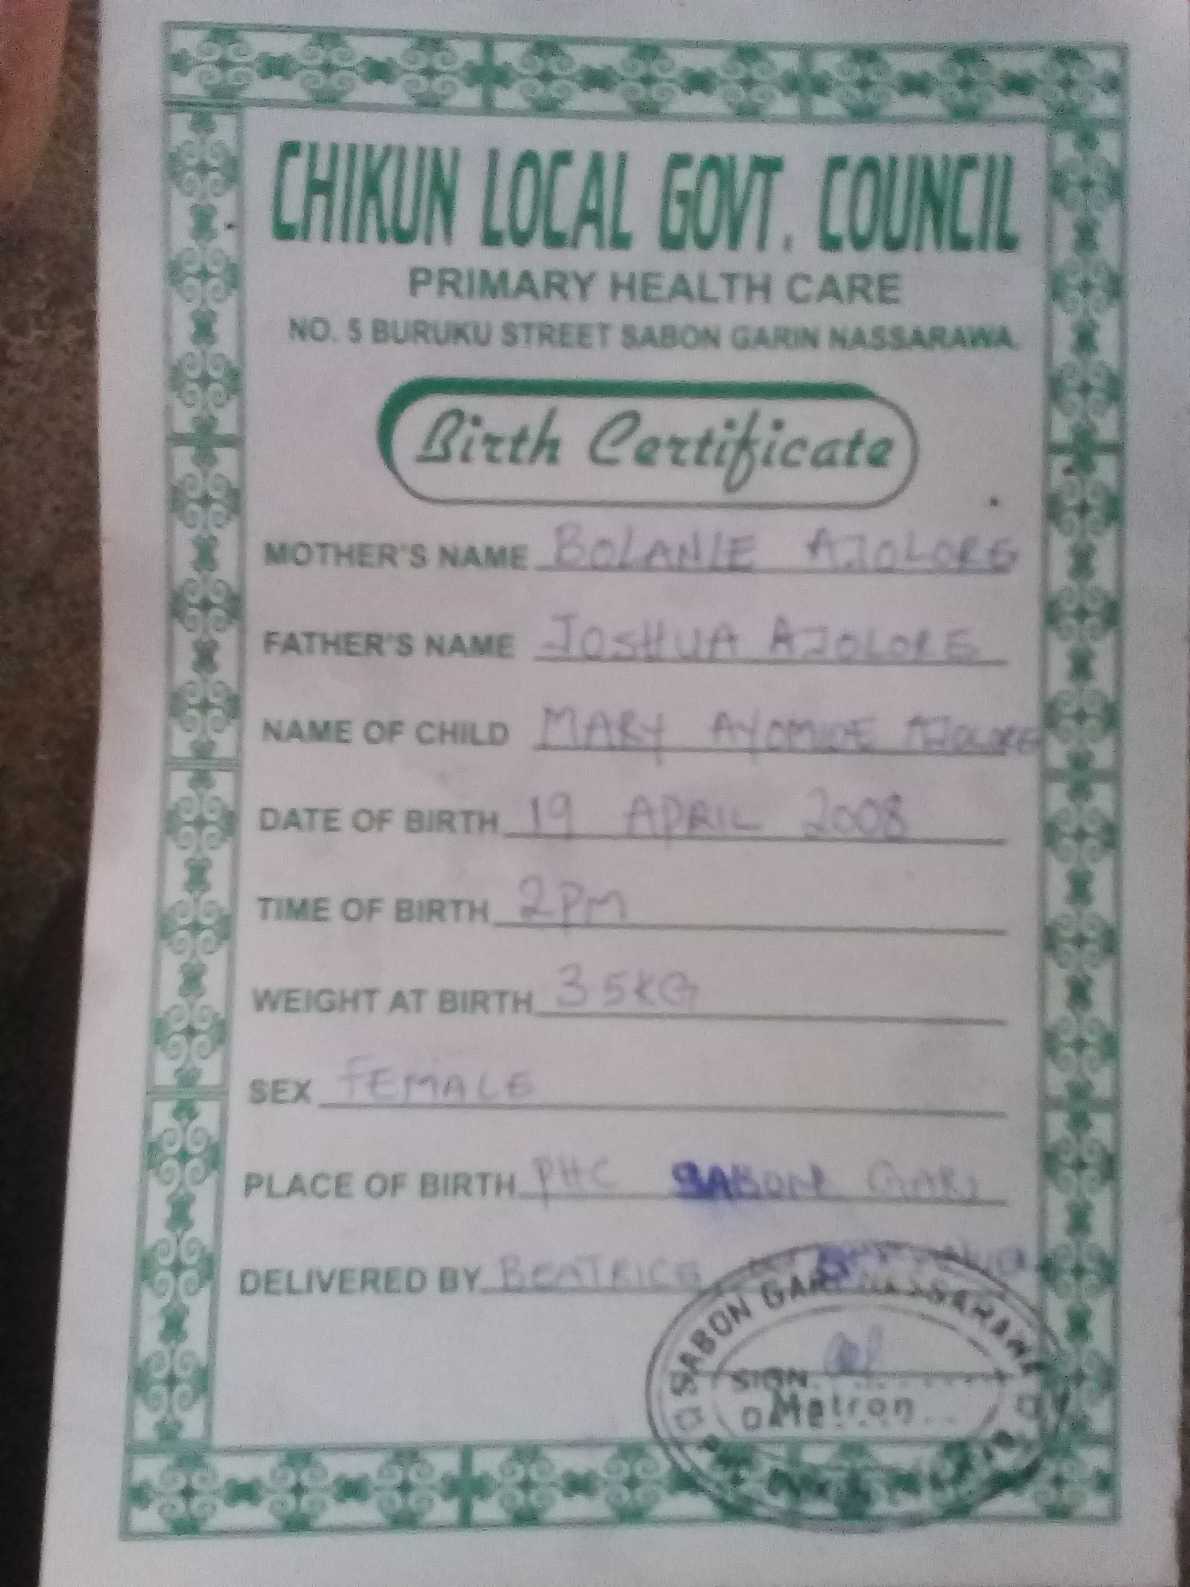 CHIKUN LOCAL GOVT. COUNCIL
PRIMARY HEALTH CARE
NO. 5 BURUKU STREET SABON GARIN NASSARAWA.
Birth Certificate
MOTHER'S NAME BOLANLE AJOLORE
FATHER'S NAME JOSHUA AJOLORE
NAME OF CHILD MARY AYOMIDE AJOLORE
DATE OF BIRTH 19 APRIL 2008
TIME OF BIRTH 2PM
WEIGHT AT BIRTH 35KG
SEX FEMALE
PLACE OF BIRTH PHC SABON GARI
DELIVERED BY BEATRICE
SABON GARI NASSARAWA
SIGN.
Matron